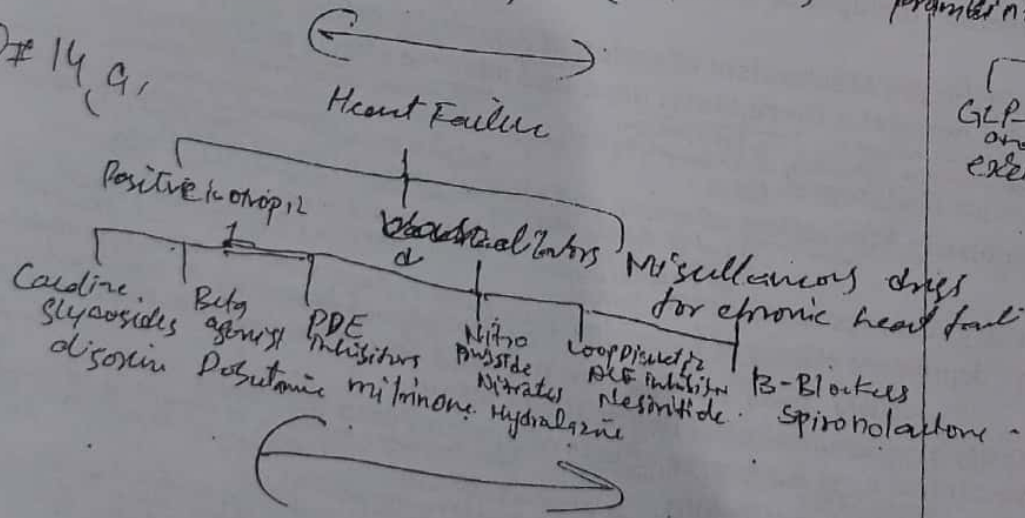 # 14, a,
Heart Failure
Positive inotropic
Vasodilators
Miscellaneous drugs
for chronic heart fail
Cardiac
glycosides
digoxin
Beta
agonist
Dobutamine
PDE
inhibitors
milrinone
Nitro
prusside
Nitrates
Hydralazine
Loop Diuretic
ACE inhibitor
Nesiritide.
B-Blockers
Spironolactone -
GLP